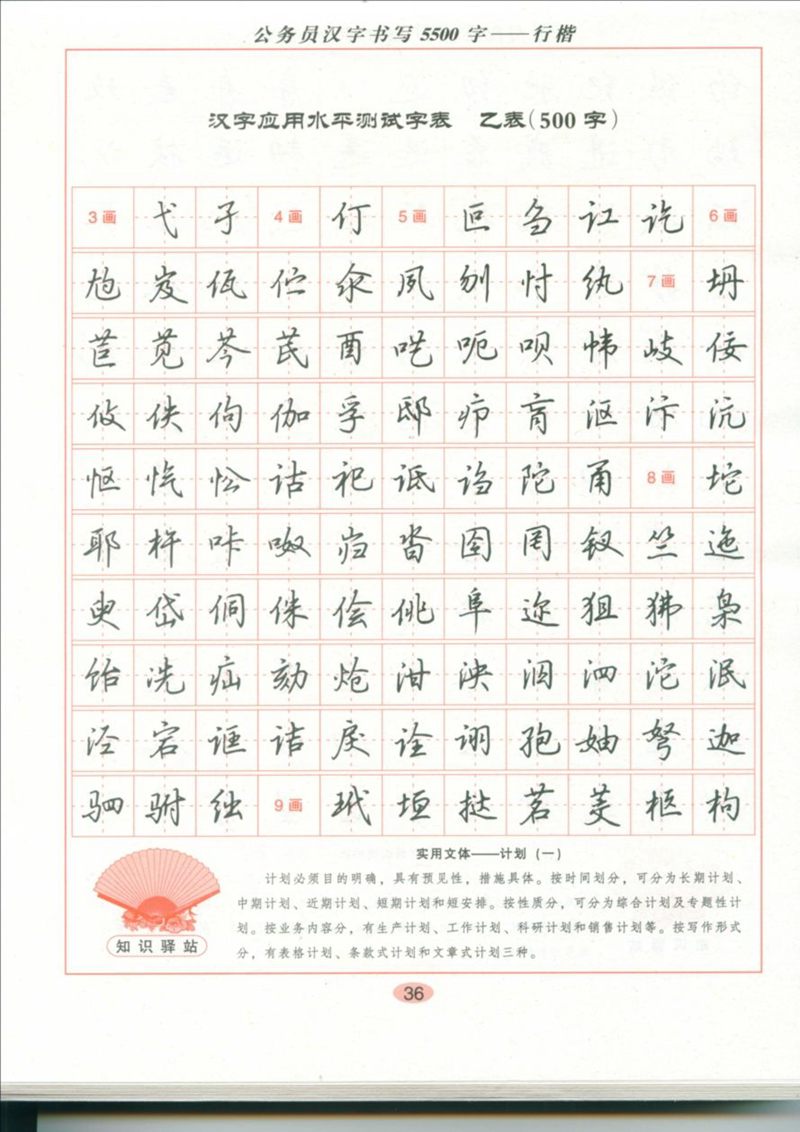 公务员汉字书写5500字——行楷
汉字应用水平测试字表 乙表(500字)
3画 弋 孑 4画 仃 5画 叵 刍 讧 讫 6画
尥 岌 佤 伫 氽 夙 刎 忖 纨 7画 坍
苣 苋 芩 芪 酉 呓 呃 呗 帏 岐 佞
攸 佚 佝 伽 孚 邸 疖 肓 沤 汴 沆
怄 忾 忪 诂 祀 诋 诌 陀 甬 8画 坨
耶 杵 咔 呶 岿 沓 囹 罔 钗 竺 迤
臾 岱 侗 侏 侩 佻 阜 迩 狙 狒 枭
饴 冼 疝 劾 炝 泔 泱 泪 泗 沱 泯
泾 宕 诓 诘 戾 诠 诩 孢 妯 弩 迦
驷 驸 绌 9画 玳 垣 挞 茗 荚 框 枸
实用文体——计划(一)
计划必须目的明确,具有预见性,措施具体。按时间划分,可分为长期计划、
中期计划、近期计划、短期计划和短安排。按性质分,可分为综合计划及专题性计
划。按业务内容分,有生产计划、工作计划、科研计划和销售计划等。按写作形式
分,有表格计划、条款式计划和文章式计划三种。
知识驿站
36